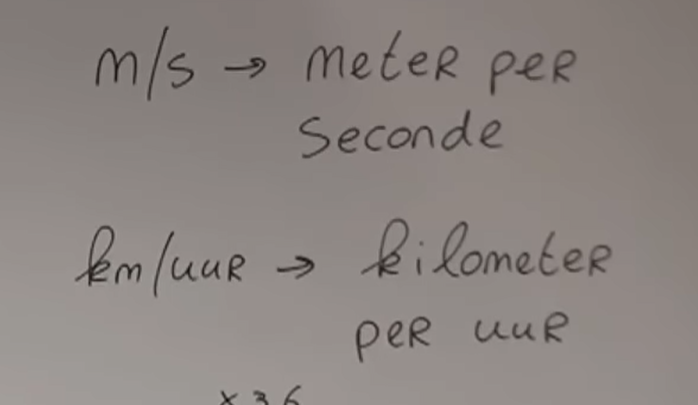 m/s → meter per
seconde
km/uur → kilometer
per uur
x 3,6